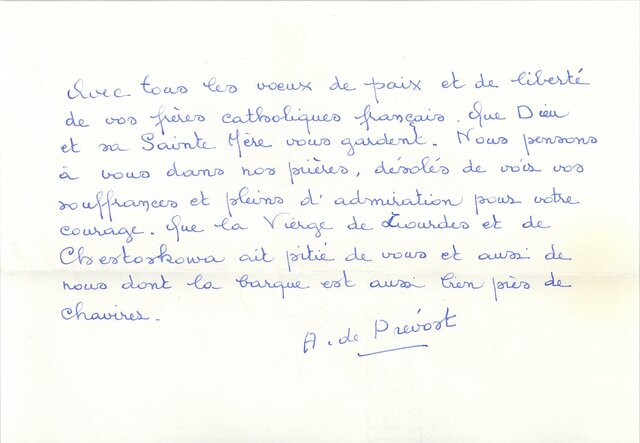 Avec tous les voeux de paix et de liberté
de vos frères catholiques français. Que Dieu
et sa Sainte Mère vous gardent. Nous pensons
à vous dans nos prières, désolés de voir vos
souffrances et pleins d'admiration pour votre
courage. Que la Vierge de Lourdes et de
Chestoskowa ait pitié de vous et aussi de
nous dont la barque est aussi bien près de
chavirer.
A. de Prévost